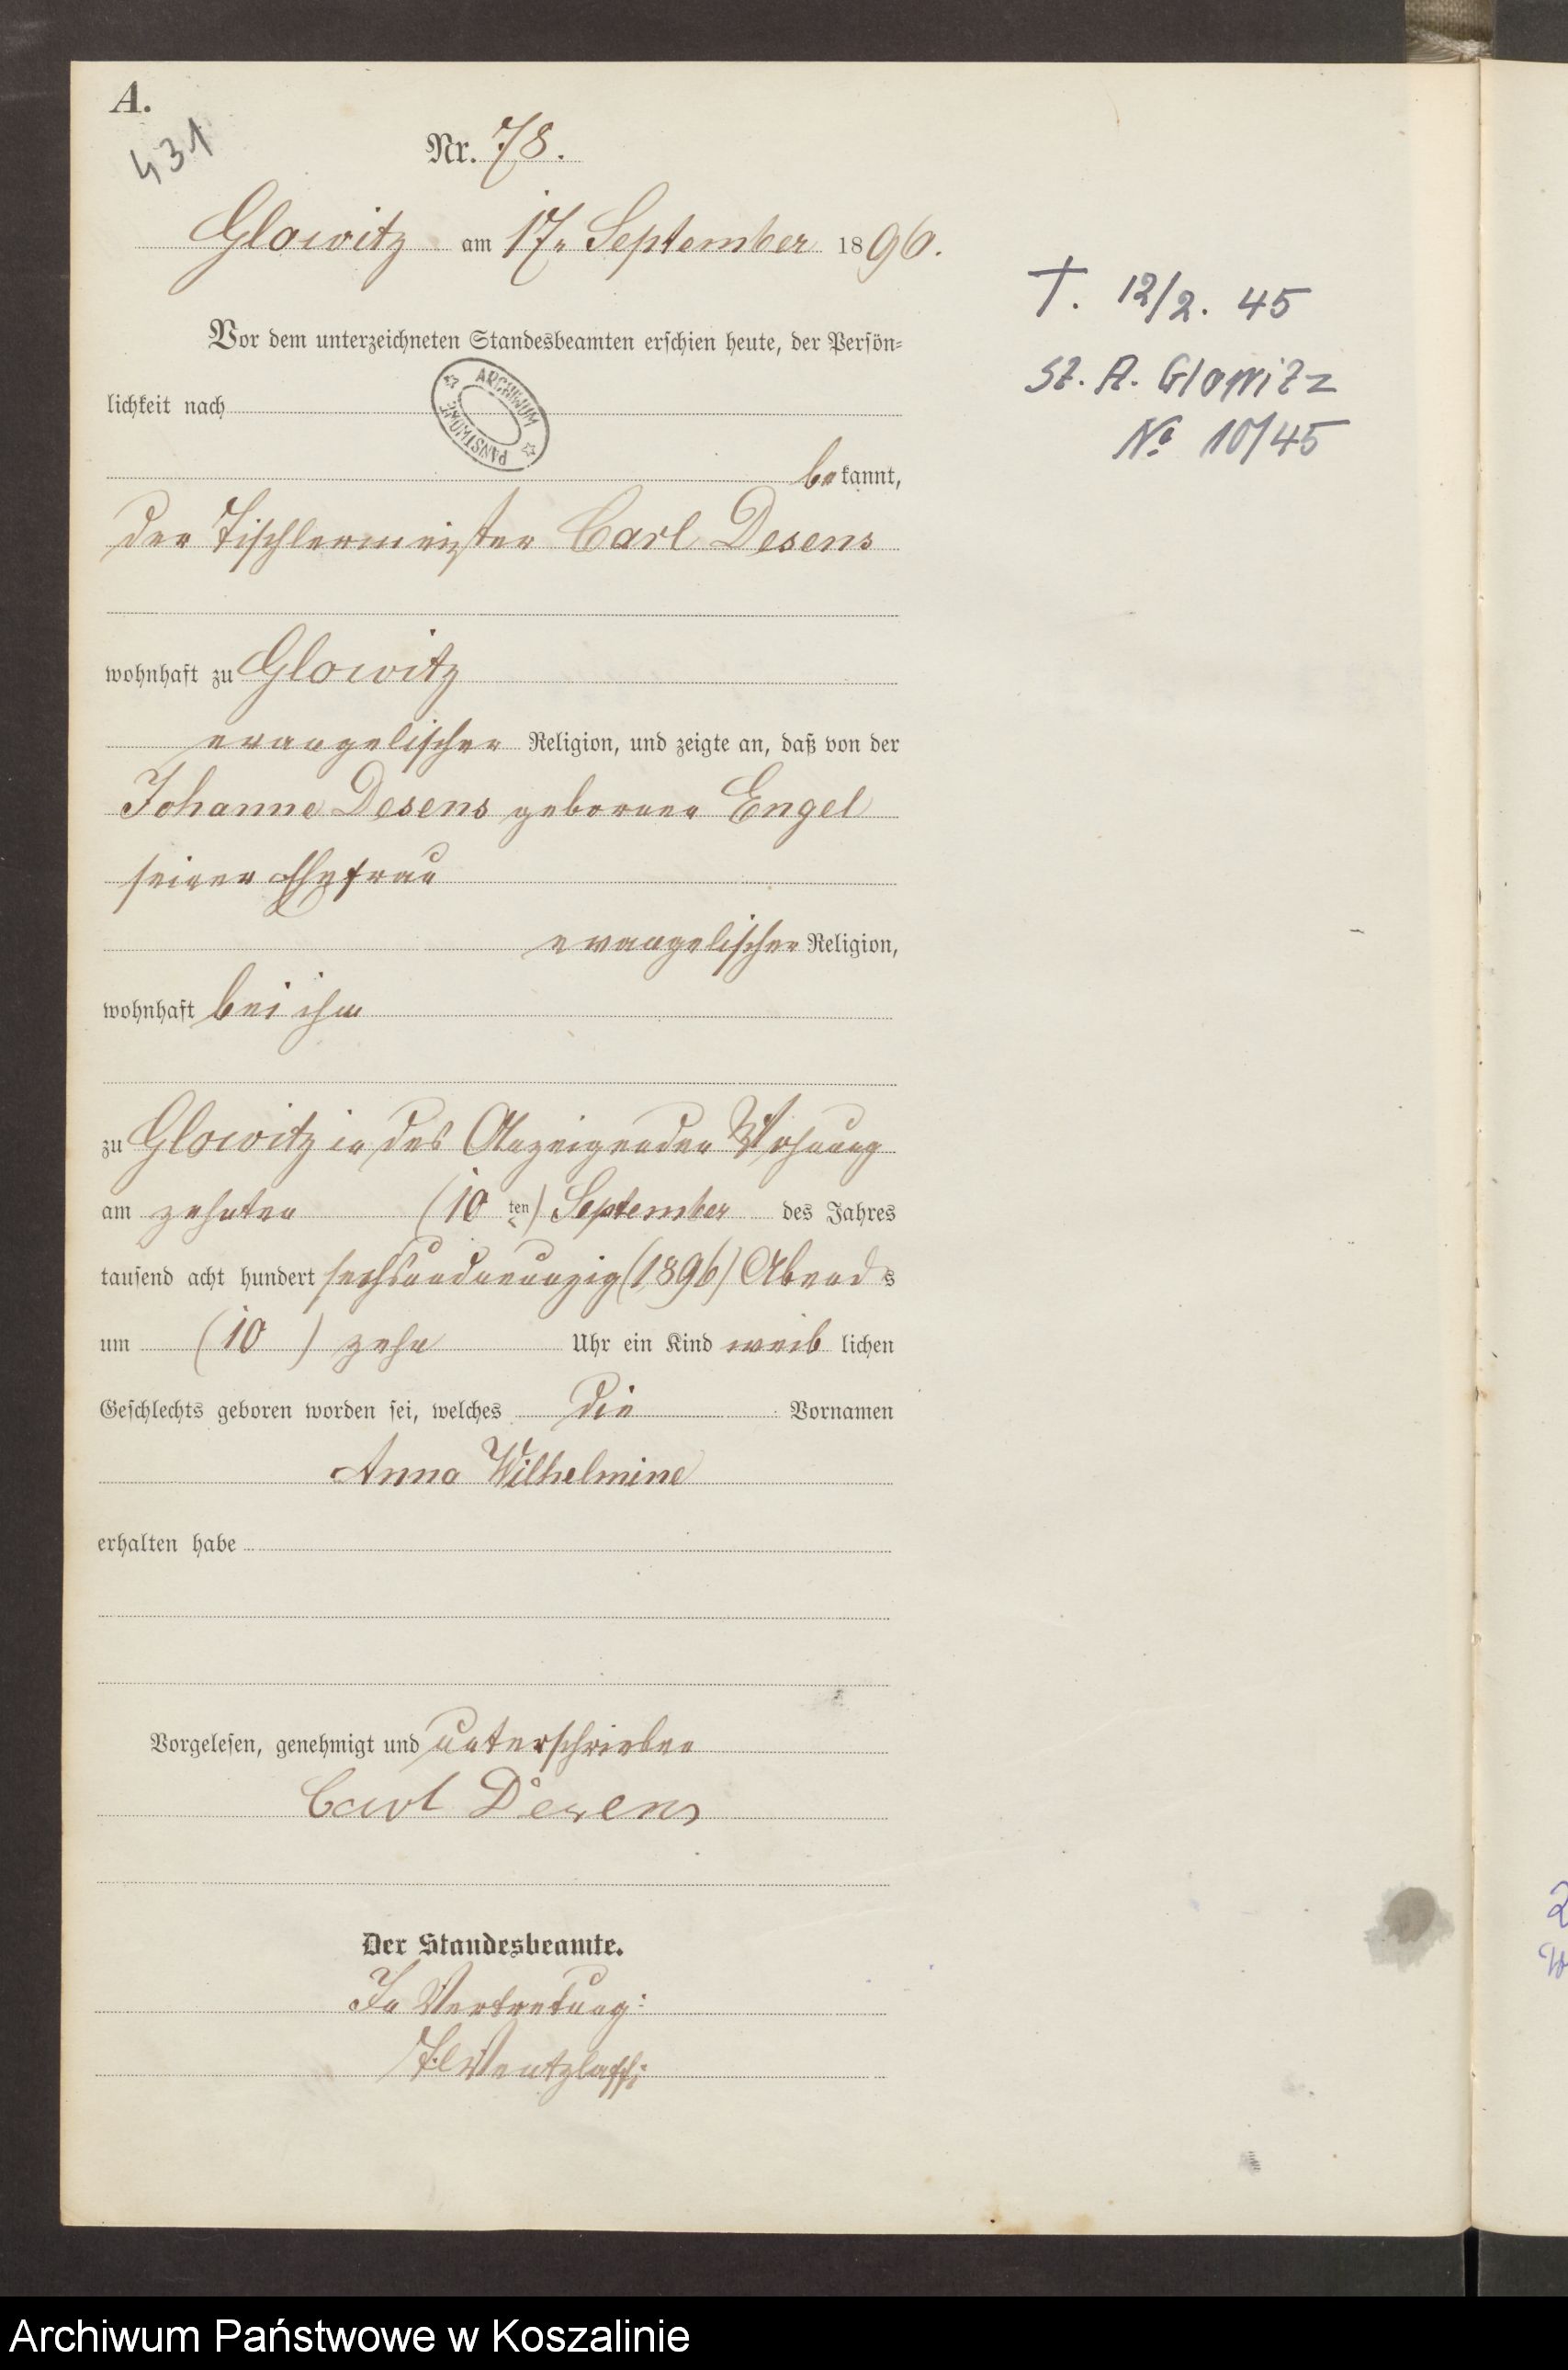 A.
431
Nr. 78.
Glowitz am 17. September 1896.
Vor dem unterzeichneten Standesbeamten erschien heute, der Persön-
lichkeit nach
ARCHIWUM PAŃSTWOWE
bekannt,
der Tischlermeister Carl Desens
wohnhaft zu Glowitz
evangelischer Religion, und zeigte an, daß von der
Johanne Desens geborene Engel
seiner Ehefrau
evangelischer Religion,
wohnhaft bei ihm
zu Glowitz in des Anzeigenden Wohnung
am zehnten (10 ten) September des Jahres
tausend acht hundert sechsundneunzig (1896) Abends
um (10) zehn Uhr ein Kind weiblichen
Geschlechts geboren worden sei, welches die Vornamen
Anna Wilhelmine
erhalten habe
Vorgelesen, genehmigt und unterschrieben
Carl Desens
Der Standesbeamte.
In Vertretung:
Wentzlaff
†. 12/2. 45
St. A. Glowitz
№ 10/45
Archiwum Państwowe w Koszalinie